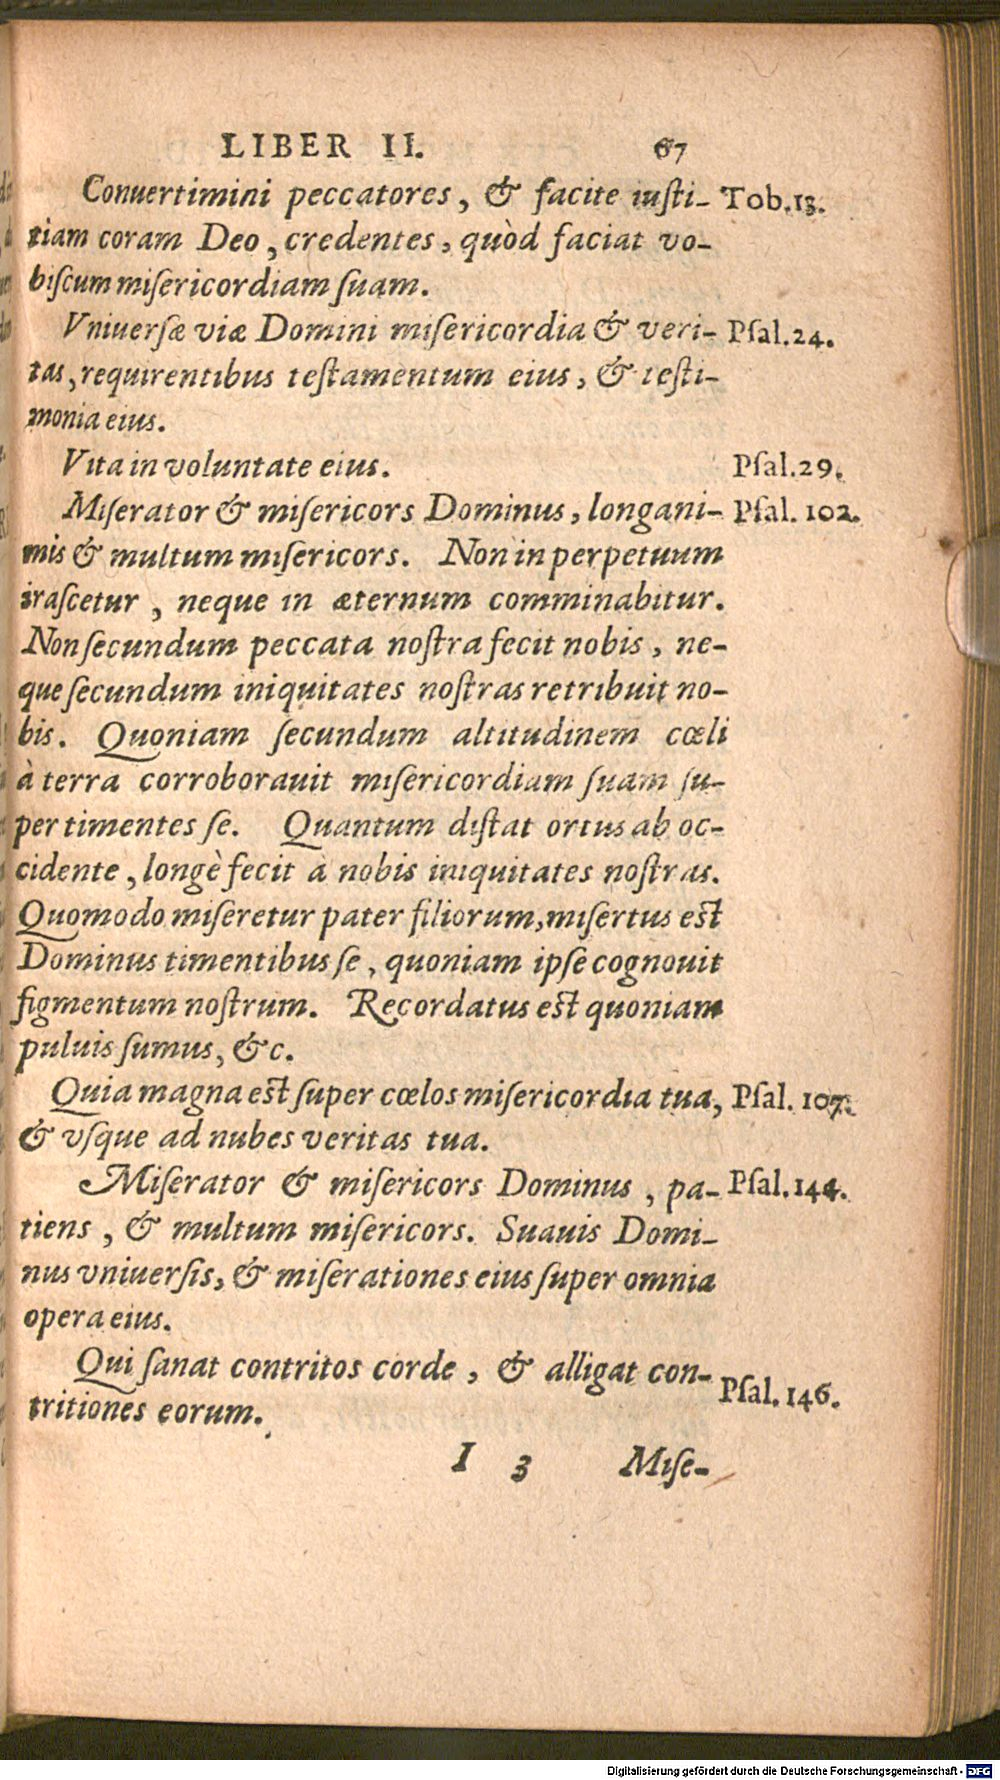 LIBER II. 67
Conuertimini peccatores, & facite iusti- Tob.13.
tiam coram Deo, credentes, quòd faciat vo-
biſcum miſericordiam ſuam.
Vniuerſæ viæ Domini miſericordia & veri- Pſal.24.
tas, requirentibus teſtamentum eius, & teſti-
monia eius.
Vita in voluntate eius. Pſal.29.
Miſerator & miſericors Dominus, longani- Pſal. 102.
mis & multum miſericors. Non in perpetuum
iraſcetur, neque in æternum comminabitur.
Non ſecundum peccata noſtra fecit nobis, ne-
que ſecundum iniquitates noſtras retribuit no-
bis. Quoniam ſecundum altitudinem cœli
à terra corroborauit miſericordiam ſuam ſu-
per timentes ſe. Quantum diſtat ortus ab oc-
cidente, longè fecit à nobis iniquitates noſtras.
Quomodo miſeretur pater filiorum, miſertus eſt
Dominus timentibus ſe, quoniam ipſe cognouit
figmentum noſtrum. Recordatus eſt quoniam
puluis ſumus, &c.
Quia magna eſt ſuper cœlos miſericordia tua, Pſal. 107.
& vſque ad nubes veritas tua.
Miſerator & miſericors Dominus, pa- Pſal.144.
tiens, & multum miſericors. Suauis Domi-
nus vniuerſis, & miſerationes eius ſuper omnia
opera eius.
Qui ſanat contritos corde, & alligat con- Pſal.146.
tritiones eorum.
I 3 Miſe-
Digitalisierung gefördert durch die Deutsche Forschungsgemeinschaft - DFG